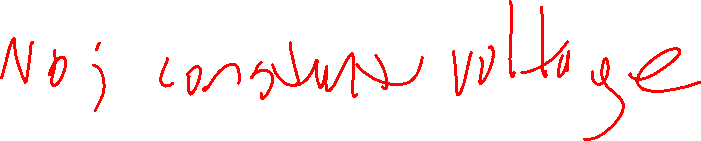 No; constant voltage